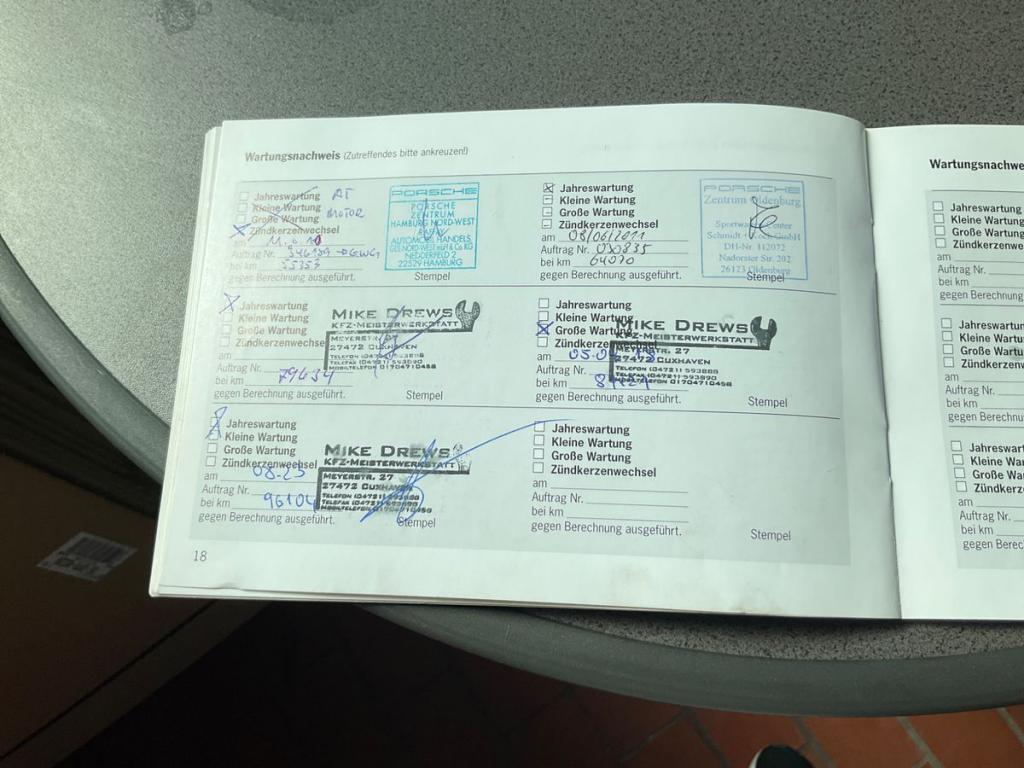 Wartungsnachweis (Zutreffendes bitte ankreuzen!)
Jahreswartung AT
Kleine Wartung
Große Wartung MOTOR
Zündkerzenwechsel
am
Auftrag Nr.
bei km 55353
gegen Berechnung ausgeführt.
PORSCHE
PORSCHE
ZENTRUM
HAMBURG NORD-WEST
AUTOMOBIL HANDELS
GES NORD-WEST mbH & Co. KG
NEDDERFELD 2
22529 HAMBURG
Stempel
Jahreswartung
Kleine Wartung
Große Wartung
Zündkerzenwechsel
am 08/06/2011
Auftrag Nr.
bei km 64070
gegen Berechnung ausgeführt.
PORSCHE
Zentrum Oldenburg
Sportwagen Center
Schmidt + Koch GmbH
DH-Nr. 112072
Nadorster Str. 202
26123 Oldenburg
Stempel
Jahreswartung
Kleine Wartung
Große Wartung
Zündkerzenwechsel
am
Auftrag Nr.
bei km 79434
gegen Berechnung ausgeführt.
MIKE DREWS
KFZ-MEISTERWERKSTATT
MEYERSTR. 27
27472 CUXHAVEN
TELEFON (04721) 593888
TELEFAX (04721) 593890
MOBILTELEFON 01704710458
Stempel
Jahreswartung
Kleine Wartung
Große Wartung
Zündkerzenwechsel
am
Auftrag Nr.
bei km
gegen Berechnung ausgeführt.
MIKE DREWS
KFZ-MEISTERWERKSTATT
MEYERSTR. 27
27472 CUXHAVEN
TELEFON (04721) 593888
TELEFAX (04721) 593890
MOBILTELEFON 01704710458
Stempel
Jahreswartung
Kleine Wartung
Große Wartung
Zündkerzenwechsel
am 08-23
Auftrag Nr.
bei km 96104
gegen Berechnung ausgeführt.
MIKE DREWS
KFZ-MEISTERWERKSTATT
MEYERSTR. 27
27472 CUXHAVEN
TELEFON (04721) 593888
TELEFAX (04721) 593890
MOBILTELEFON 01704710458
Stempel
Jahreswartung
Kleine Wartung
Große Wartung
Zündkerzenwechsel
am
Auftrag Nr.
bei km
gegen Berechnung ausgeführt.
Stempel
18
Wartungsnachwe
Jahreswartung
Kleine Wartung
Große Wartung
Zündkerzenw
am
Auftrag Nr.
bei km
gegen Berechnung
Jahreswartung
Kleine Wartung
Große Wartu
Zündkerzenw
am
Auftrag Nr.
bei km
gegen Berechnu
Jahreswartun
Kleine Wartu
Große Wartu
Zündkerze
am
Auftrag Nr.
bei km
gegen Berech